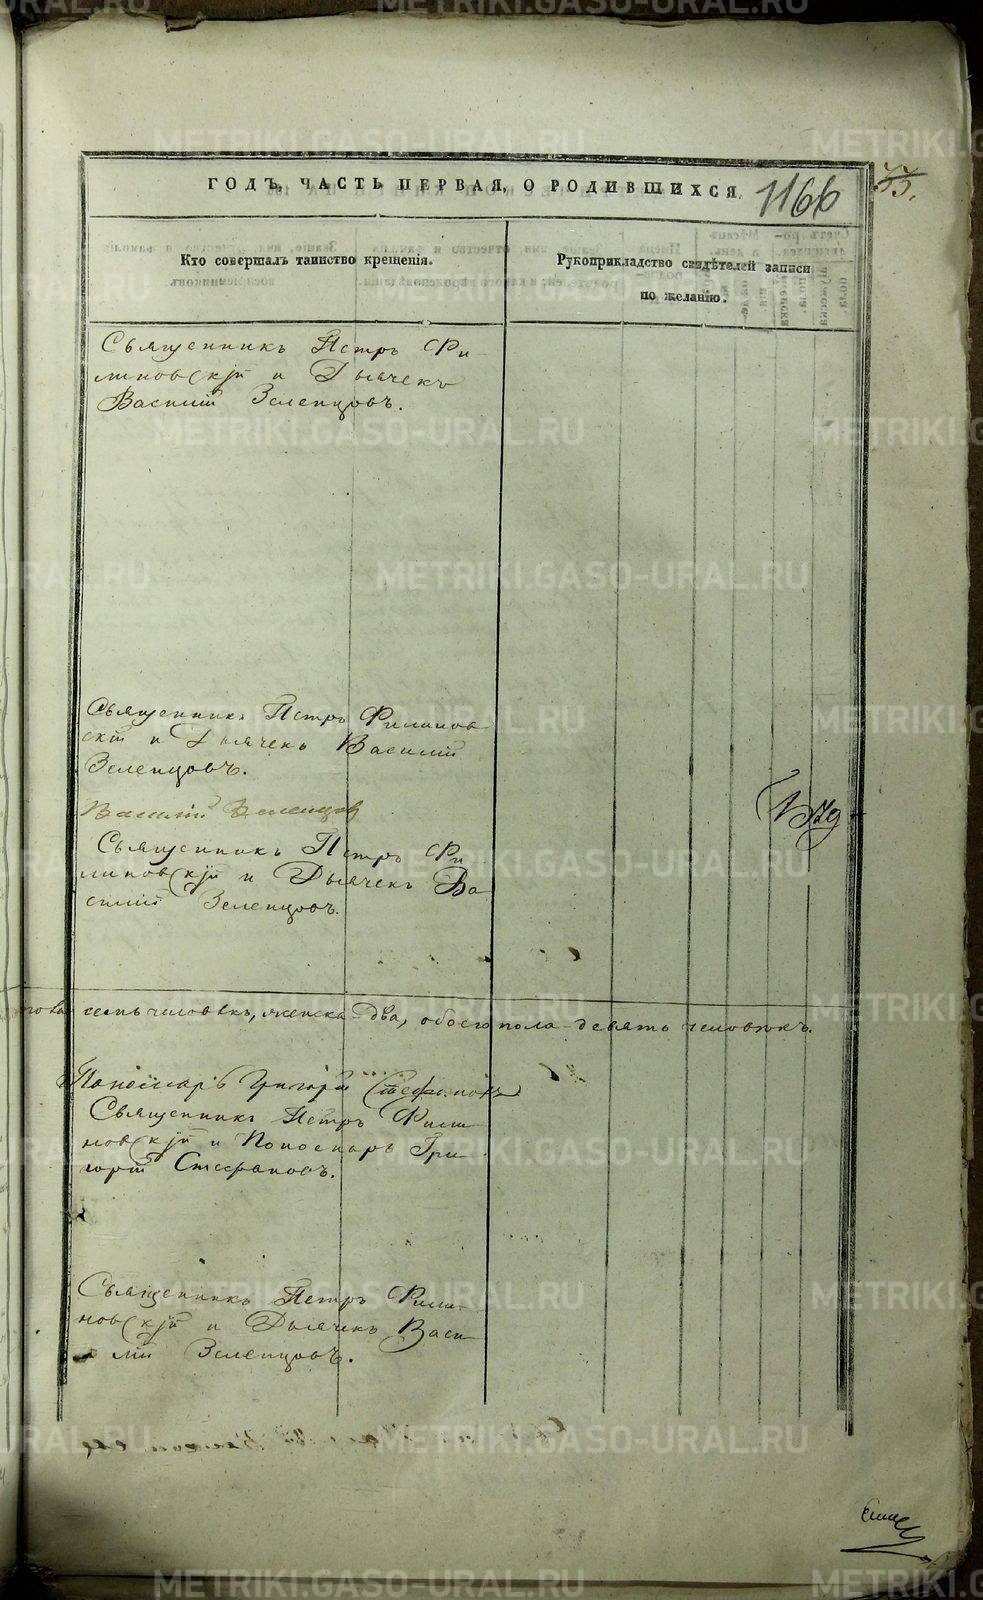 ГОДЪ, ЧАСТЬ ПЕРВАЯ, О РОДИВШИХСЯ. 1166
Кто совершалъ таинство крещенія.
Рукоприкладство свидѣтелей записи
по желанію.
Священникъ Петръ Фи-
линовскій и Дьячекъ
Василій Зеленцовъ.
Священникъ Петръ Филинов-
скій и Дьячекъ Василій
Зеленцовъ.
Василій Зеленцовъ
Священникъ Петръ Фи-
линовскій и Дьячекъ Ва-
силій Зеленцовъ.
семь человекъ, женска два, обоего пола девять человѣкъ.
Пономарь Григорій Стефановъ
Священникъ Петръ Фили-
новскій и Пономарь Гри-
горій Стефановъ.
Священникъ Петръ Фили-
новскій и Дьячекъ Васи-
лій Зеленцовъ.
METRIKI.GASO-URAL.RU